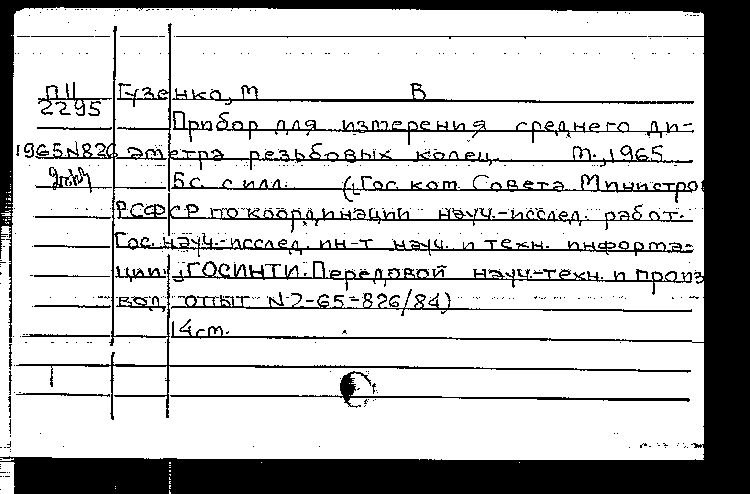 П11 Гузенко, М В
2295
Прибор для измерения среднего ди-
1965N826 аметра резьбовых колец. М., 1965
5с. с илл. (Гос. ком. Совета Министро
РСФСР по координации науч.-исслед. работ.
Гос. науч.-исслед. ин-т науч. и техн. информа-
ции „ГОСИНТИ. Передовой науч-техн. и произ
вод. опыт N2-65-826/84)
14см.